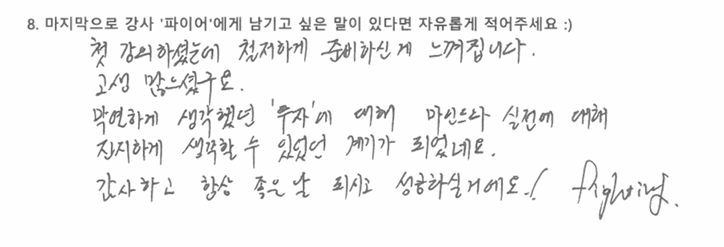 8. 마지막으로 강사 '파이어'에게 남기고 싶은 말이 있다면 자유롭게 적어주세요 :)
첫 강의하셨는데 철저하게 준비하신게 느껴집니다.
고생 많으셨구요.
막연하게 생각했던 '투자'에 대해 마인드와 실전에 대해
진지하게 생각할 수 있었던 계기가 되었네요.
감사하고 항상 좋은 날 되시고 성공하실거에요! fighting.